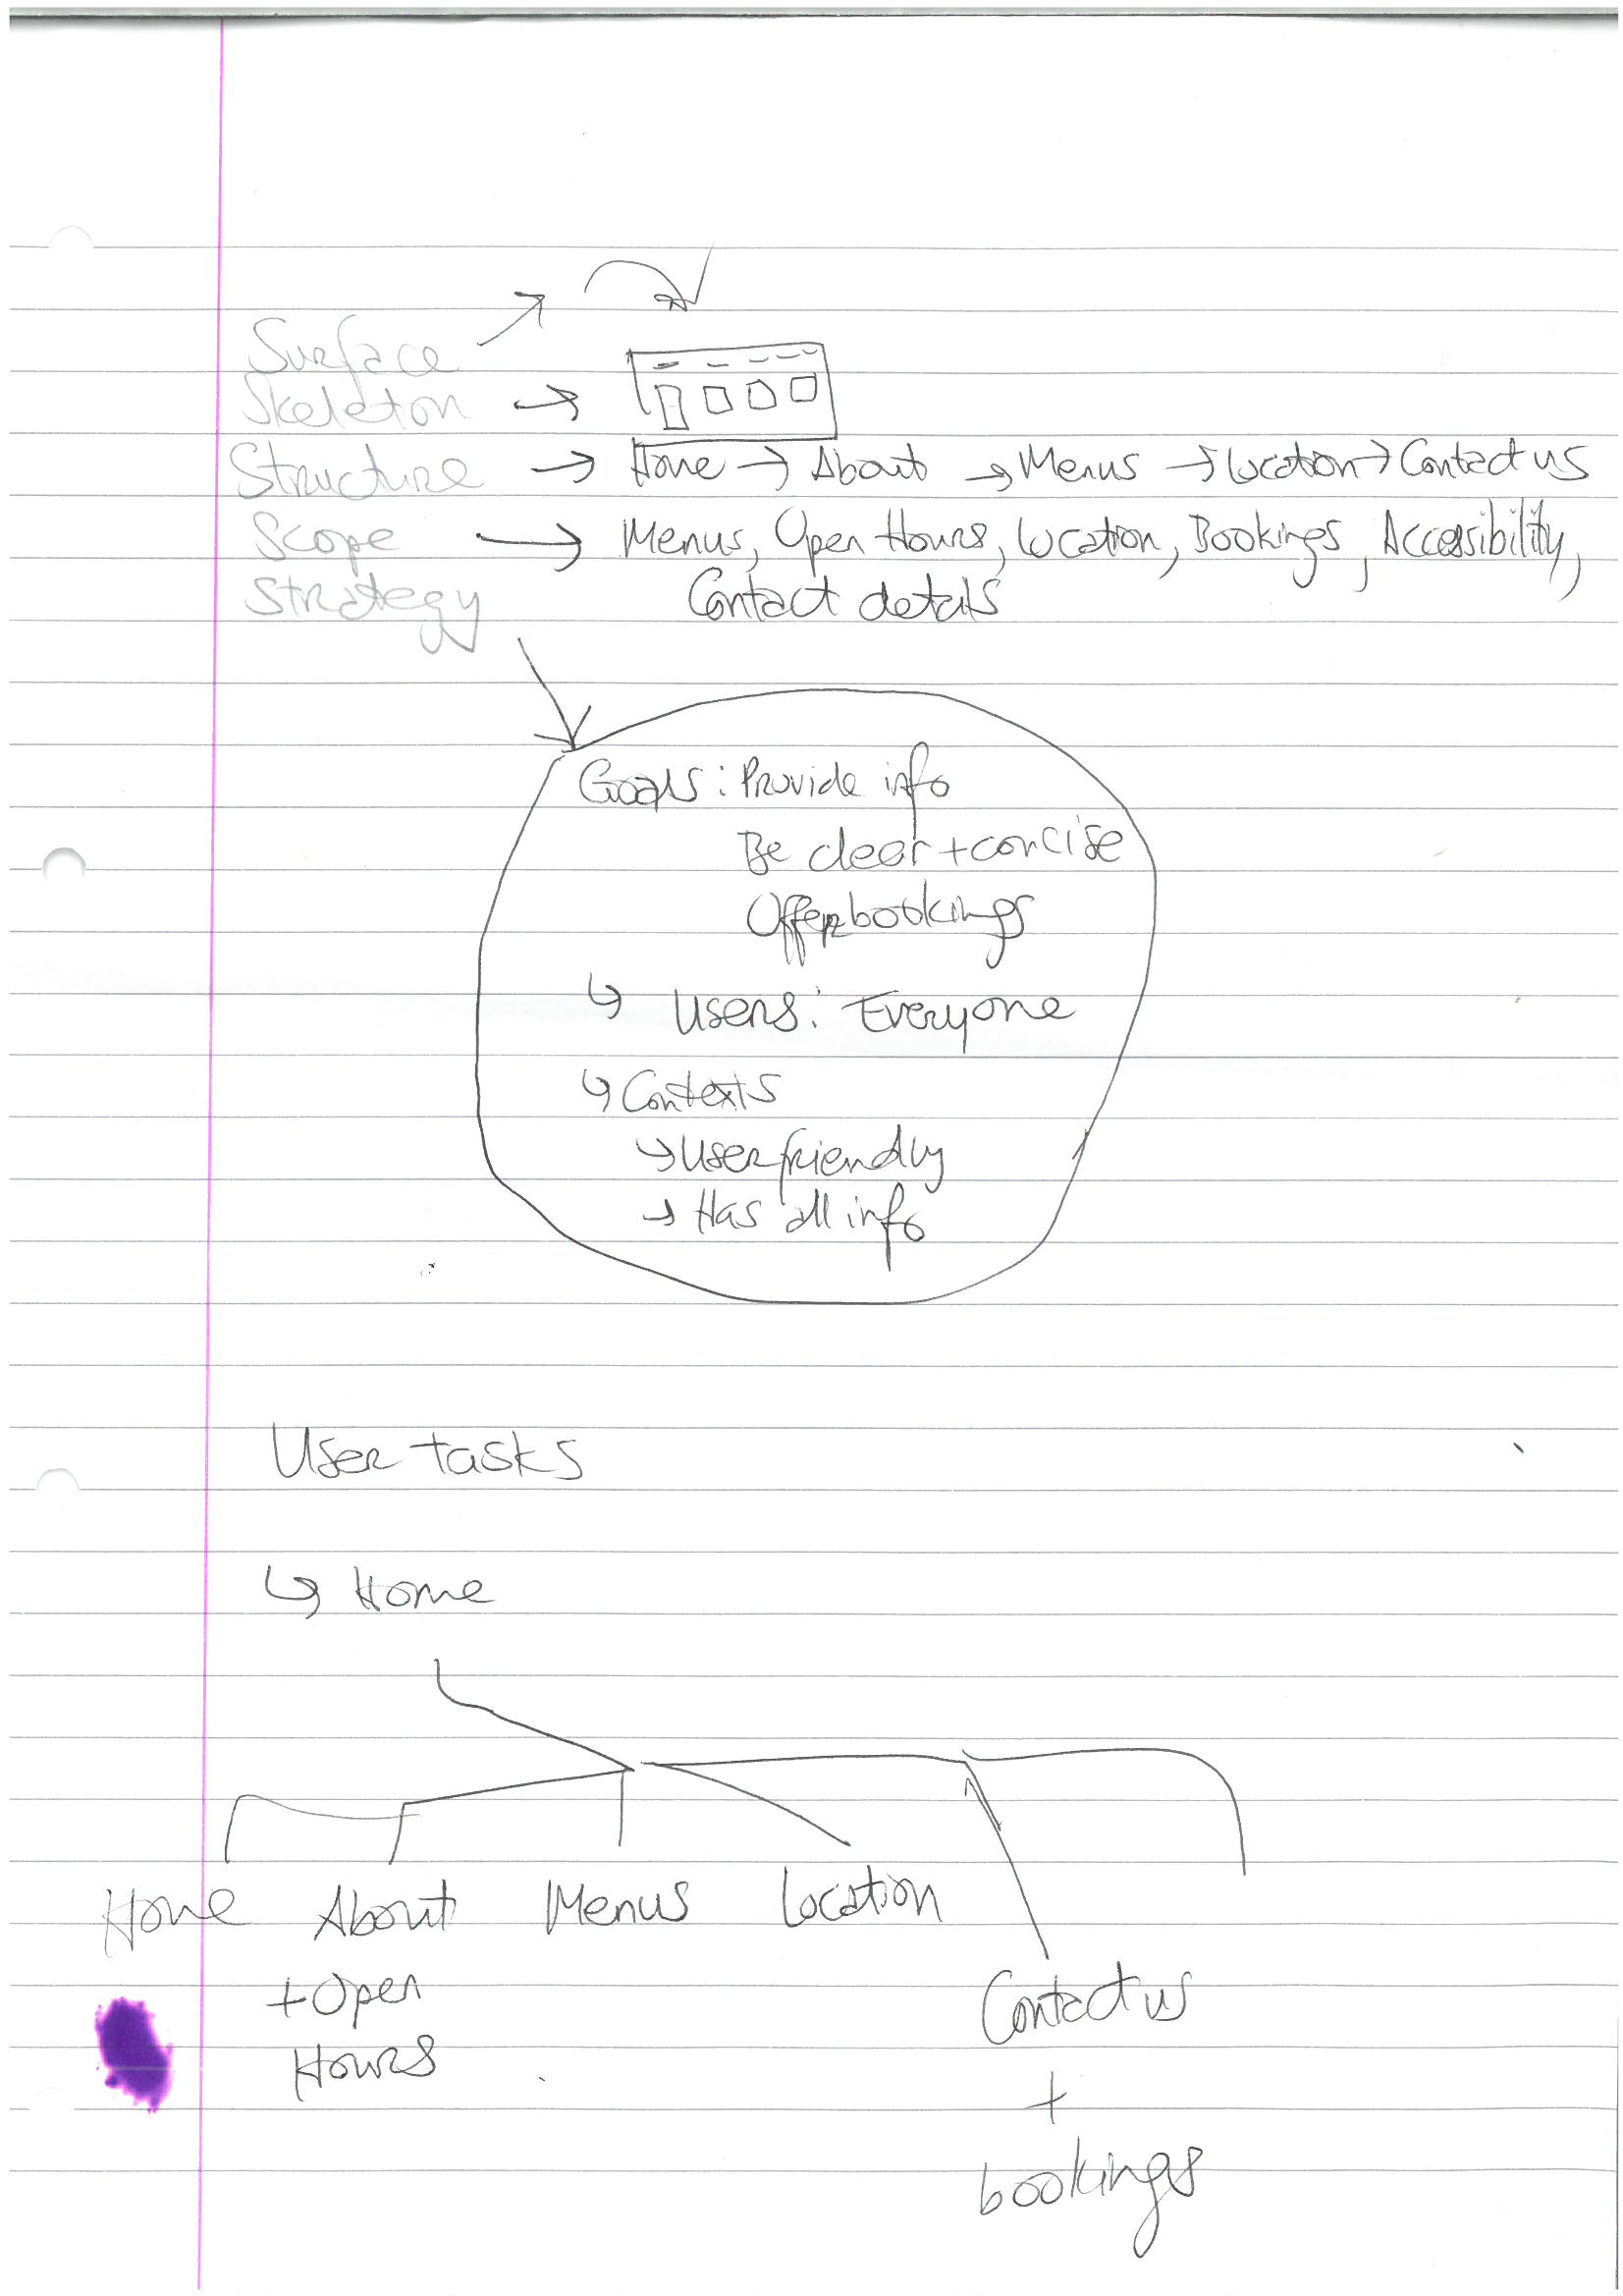 Surface
Skeleton
Structure → Home → About → Menus → Location → Contact us
Scope → Menus, Open Hours, Location, Bookings, Accessibility,
Contact details
Strategy
Goals: Provide info
Be clear + concise
Offer bookings
↳ Users: Everyone
↳ Contexts
→ User friendly
→ Has all info
User tasks
↳ Home
Home About Menus Location
+ Open
Hours
Contact us
+
bookings